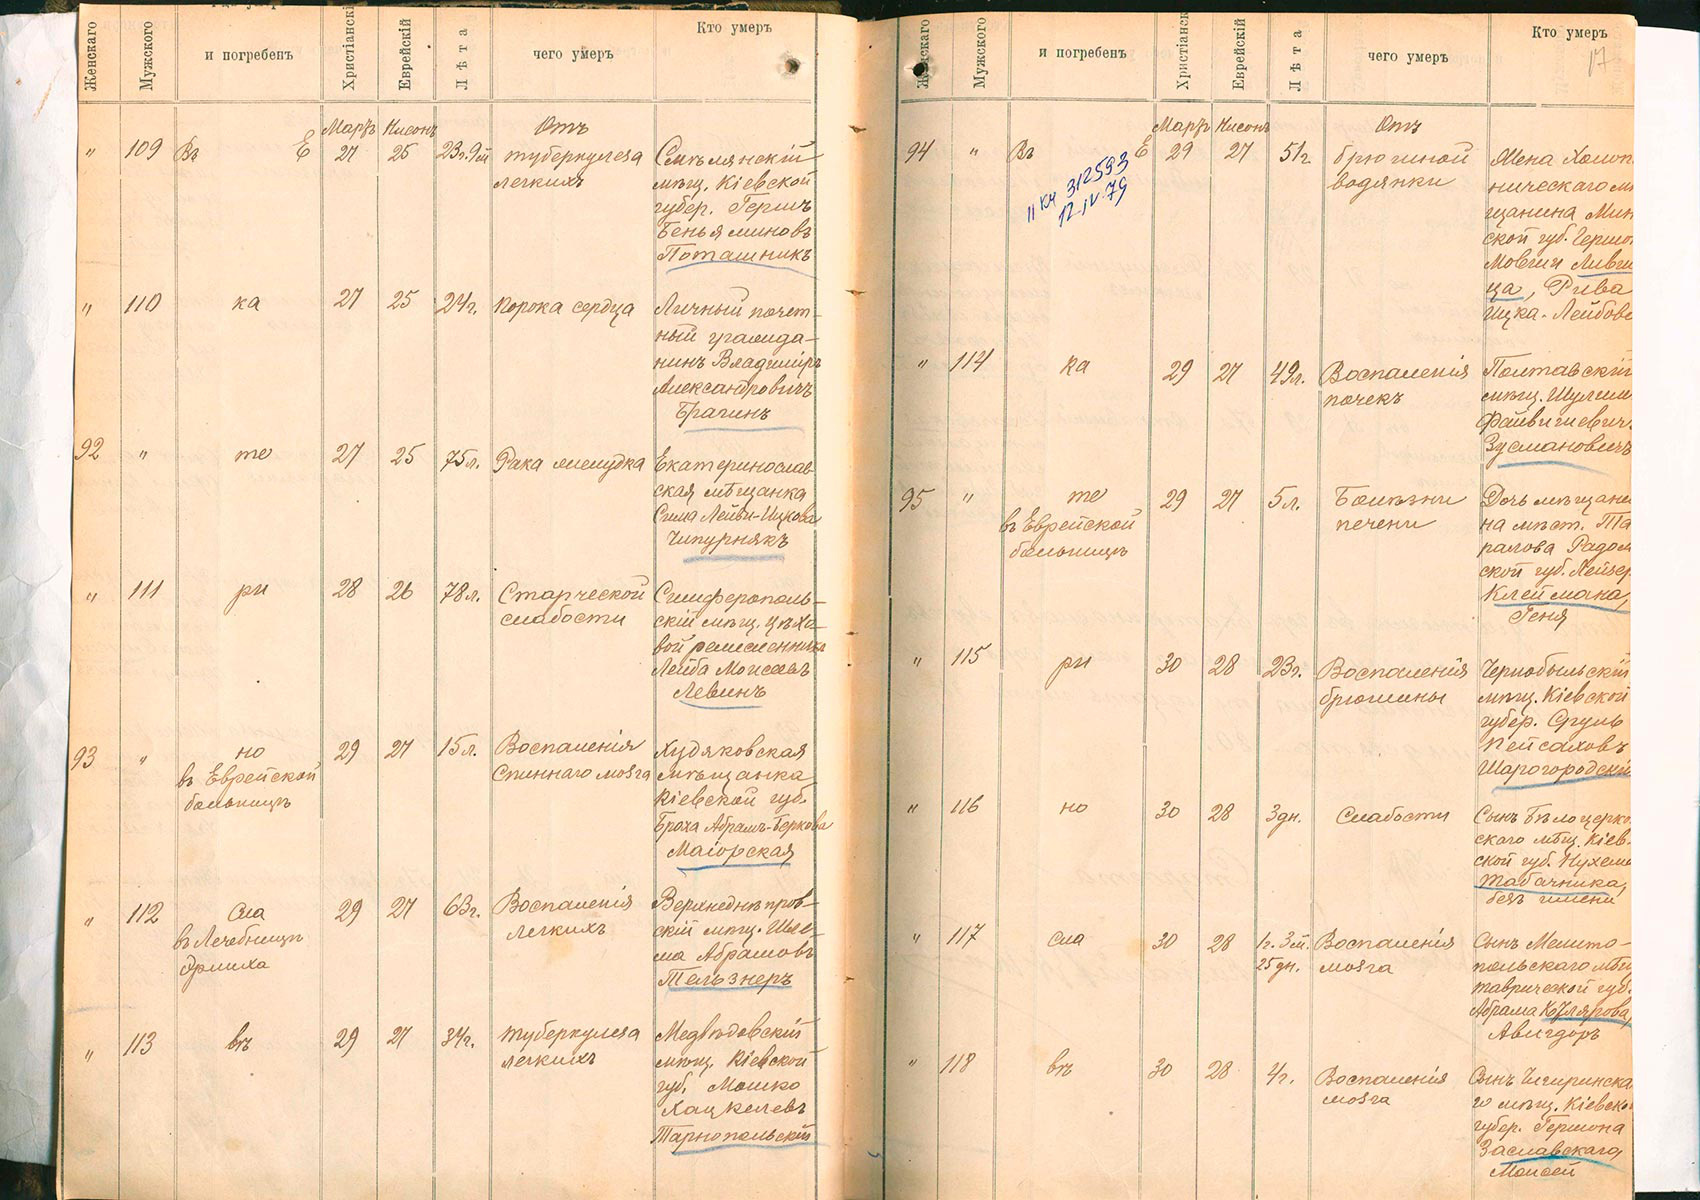 Женскаго
Мужского
и погребенъ
Христіанскі
Еврейскій
Лѣта
чего умеръ
Кто умеръ
Мартъ Нисонъ Отъ
" 109 Въ Е 27 25 23г. 9 м туберкулеза
легкихъ
Смѣлянскій
мѣщ. Кіевской
губер. Гершъ
Беньяминовъ
Поташникъ
" 110 ка 27 25 24г. порока сердца
Личный почет-
ный гражда-
нинъ Владиміръ
Александровичъ
Брагинъ
92 " те 27 25 75л. Рака желудка
Екатеринослав
ская мѣщанка
Сима Лейви-Ицкова
Чипурнякъ
" 111 ри 28 26 78л. Старческой
слабости
Симферополь-
скій мѣщ. цѣхо-
вой ремесленникъ
Лейба Моисеевъ
Левинъ
93 " но 29 27 15л. Воспаленія
въ Еврейской
больницѣ
Спиннаго мозга
Худяковская
мѣщанка
Кіевской губ.
Броха Абрамъ-Беркова
Маіорская
" 112 сла 29 27 63г. Воспаленія
въ Лечебницѣ
легкихъ
Верхнеднѣпров-
скій мѣщ. Шле-
ма Абрамовъ
Тельзнеръ
" 113 вѣ 29 27 34г. туберкулеза
легкихъ
Медвѣдовскій
мѣщ. Кіевской
губ. Мошко
Хацкелевъ
Тарнопольскій
Женскаго
Мужского
и погребенъ
Христіанск
Еврейскій
Лѣта
чего умеръ
Кто умеръ
17
Мартъ Нисонъ Отъ
94 " Въ Е 29 27 51г брюшной
водянки
II КЧ 312593
12 IV.79
Жена Хойни
ническаго мѣ
щанина Мин
ской губ. Гершо
Мовши Ливши
ца, Рива
Ицка-Лейбова
" 114 ка 29 27 49л. Воспаленія
почекъ
Полтавскій
мѣщ. Шулим
Файвишевичъ
Зусмановичъ
95 " те 29 27 5л. Болѣзни
въ Еврейской
больницѣ
печени
Дочь мѣщани
на мѣст. Та
ралова Радом
ской губ. Лейзер
Клеймана,
Геня
" 115 ри 30 28 23г. Воспаленія
брюшины
Чернобыльскій
мѣщ. Кіевской
губер. Сруль
Пейсаховъ
Шарогородскій
" 116 но 30 28 3дн. Слабости
Сынъ Бѣлоцерко
скаго мѣщ. Кіев-
ской губ. Нухема
Табачника,
безъ имени
" 117 сла 30 28 1г. 3м. Воспаленія
25дн. мозга
Сынъ Мелито-
польскаго мѣщ
таврической губ.
Абрама Котлярова,
Авигдоръ
" 118 вѣ 30 28 4г. Воспаленія
мозга
Сынъ Чигиринска
го мѣщ. Кіевско
губер. Гершона
Заславскаго,
Моисей